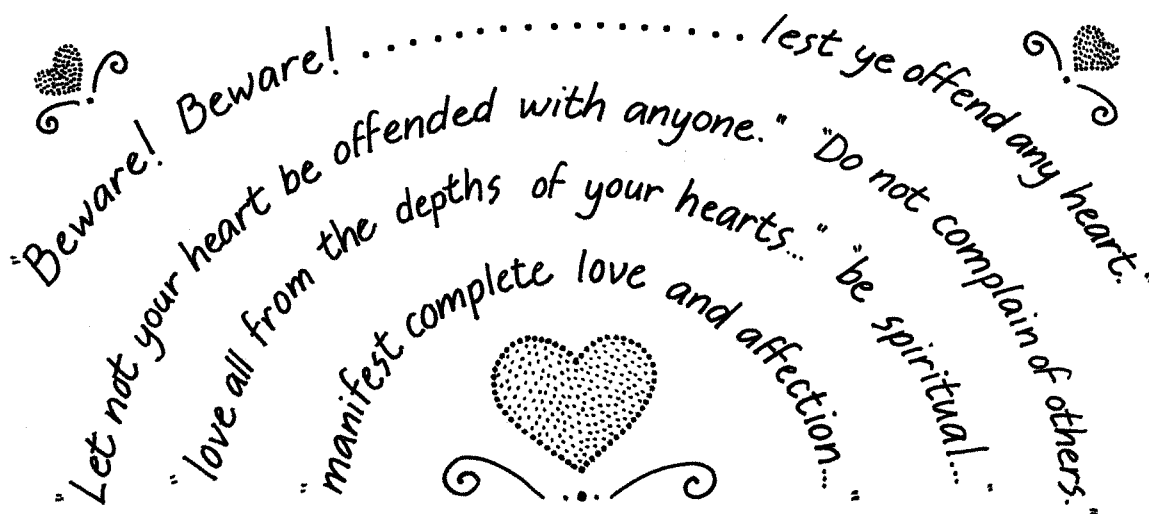 "Beware! Beware! .......................... lest ye offend any heart."
"Let not your heart be offended with anyone." "Do not complain of others."
"love all from the depths of your hearts..." "be spiritual..."
"manifest complete love and affection..."